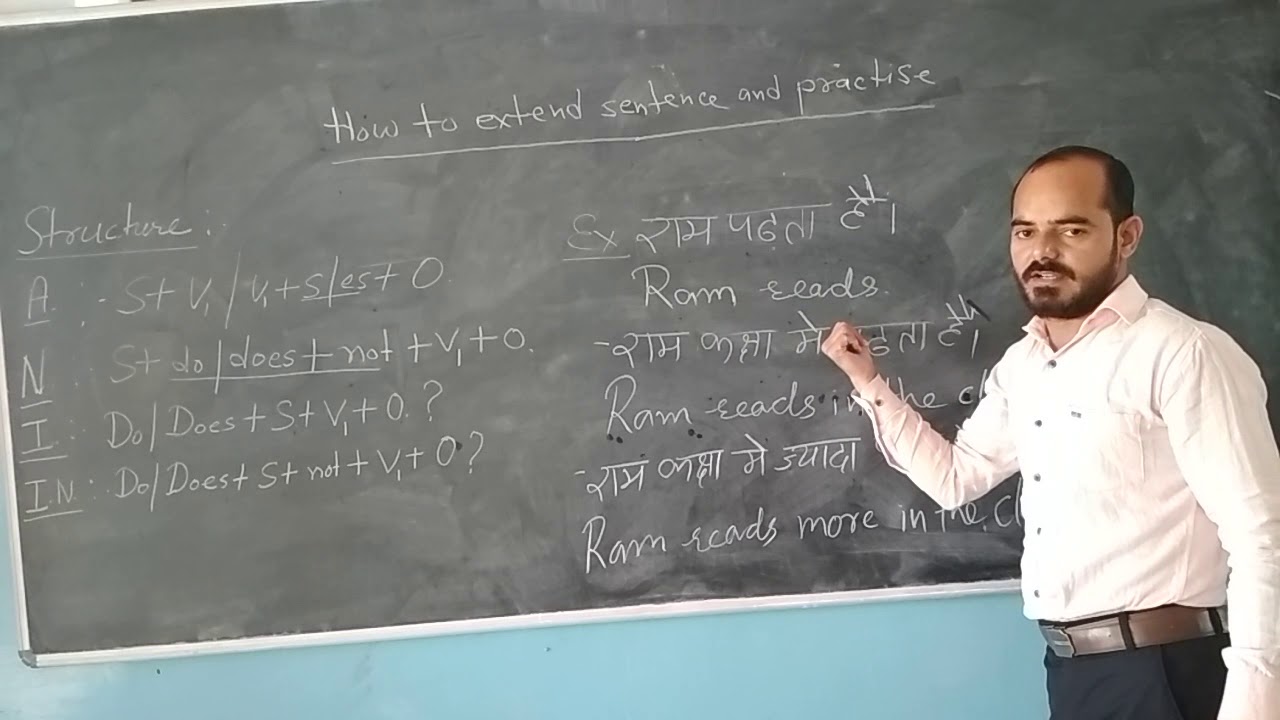 How to extend sentence and practise
Structure:
A. :- S + V₁ / V₁ + s/es + O.
N : S + do/does + not + V₁ + O.
I : Do/Does + S + V₁ + O. ?
I.N. : Do/Does + S + not + V₁ + O ?
Ex राम पढ़ता है।
Ram reads.
- राम कक्षा मे है।
Ram reads in the
- राम कक्षा मे ज्यादा
Ram reads more in the